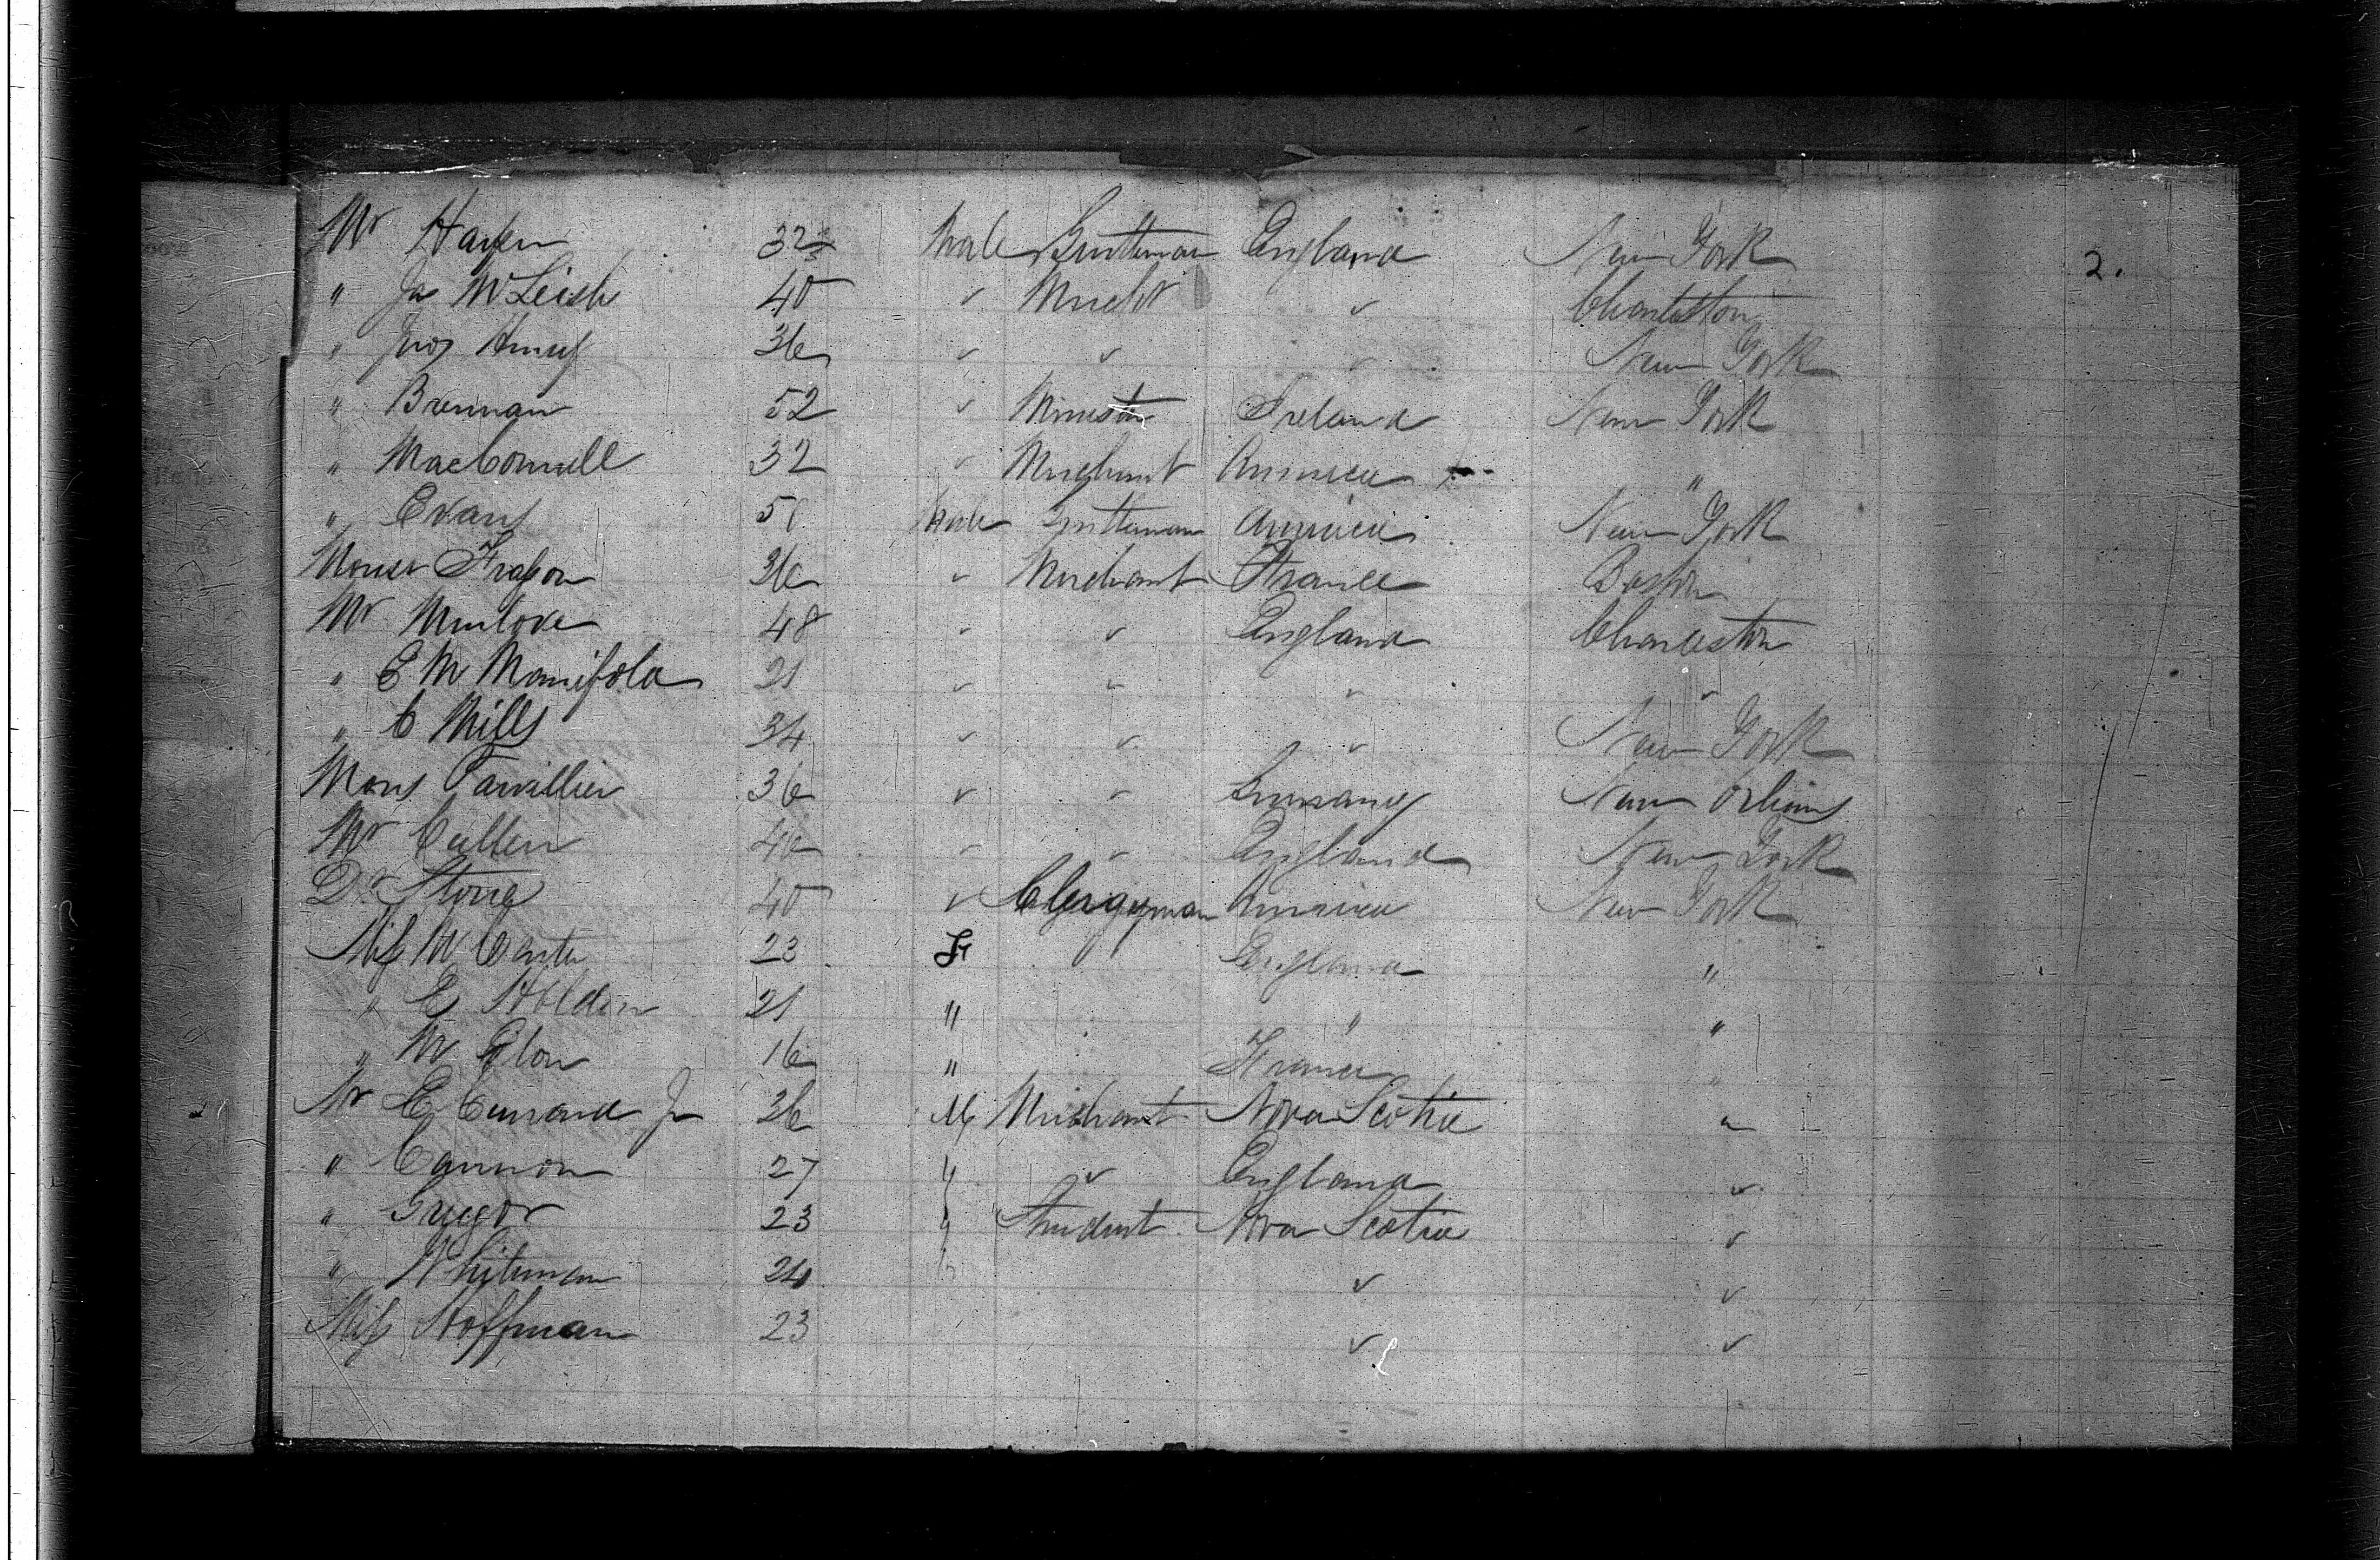 Mr Hayen 32 Male Gentleman England New York
2.
" Jas McLeish 40 " Mercht " Charleston
" Jno 36 " " " New York
" Brennan 52 " Minister Ireland New York
" MacConnell 32 " Merchant America "
" Evans 50 Male Gentleman America New York
Monsr 36 " Merchant France Boston
Mr Munlove 48 " " England Charleston
" E M Manifold 21 " " " "
" C Mills 34 " " " New York
Mons Tarvillier 36 " " Germany New Orleans
Mr Cullen 46 " " England New York
Dr Storrs 40 " Clergyman America New York
Miss M Carter 23 F England "
" E Holden 21 " " "
" M Elon 16 " France "
Mr E Cunard Jr 26 M Merchant Nova Scotia "
" Cannon 27 " " England "
" Gregor 23 " Student Nova Scotia "
" Whitman 24 " " "
Miss Hoffman 23 " "